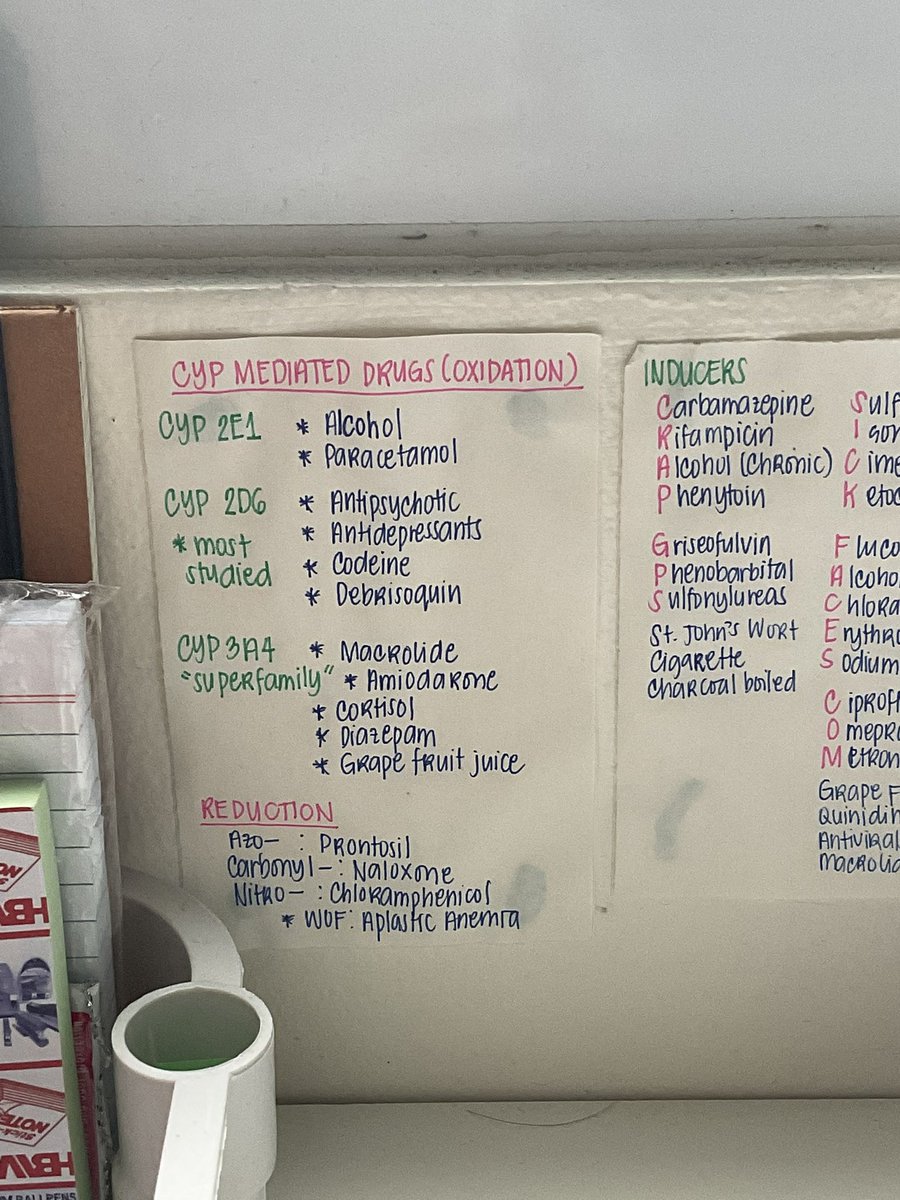 CYP MEDIATED DRUGS (OXIDATION)
CYP 2E1 * Alcohol
* Paracetamol
CYP 2D6 * Antipsychotic
* most studied * Antidepressants
* Codeine
* Debrisoquin
CYP 3A4 * Macrolide
"superfamily" * Amiodarone
* Cortisol
* Diazepam
* Grape fruit juice
REDUCTION
Azo- : Prontosil
Carbonyl- : Naloxone
Nitro- : Chloramphenicol
* WOF: Aplastic Anemia
INDUCERS
Carbamazepine
Rifampicin
Alcohol (Chronic)
Phenytoin
Griseofulvin
Phenobarbital
Sulfonylureas
St. John's Wort
Cigarette
Charcoal boiled
Sulf
I
Cime
Ketoc
Fluco
Alcoho
Chlora
Erythro
Sodium
Ciprof
Omepra
Metron
Grape F
Quinidin
Antiviral
Macrolid
HBW
NOTE
HBW
BALL PENS